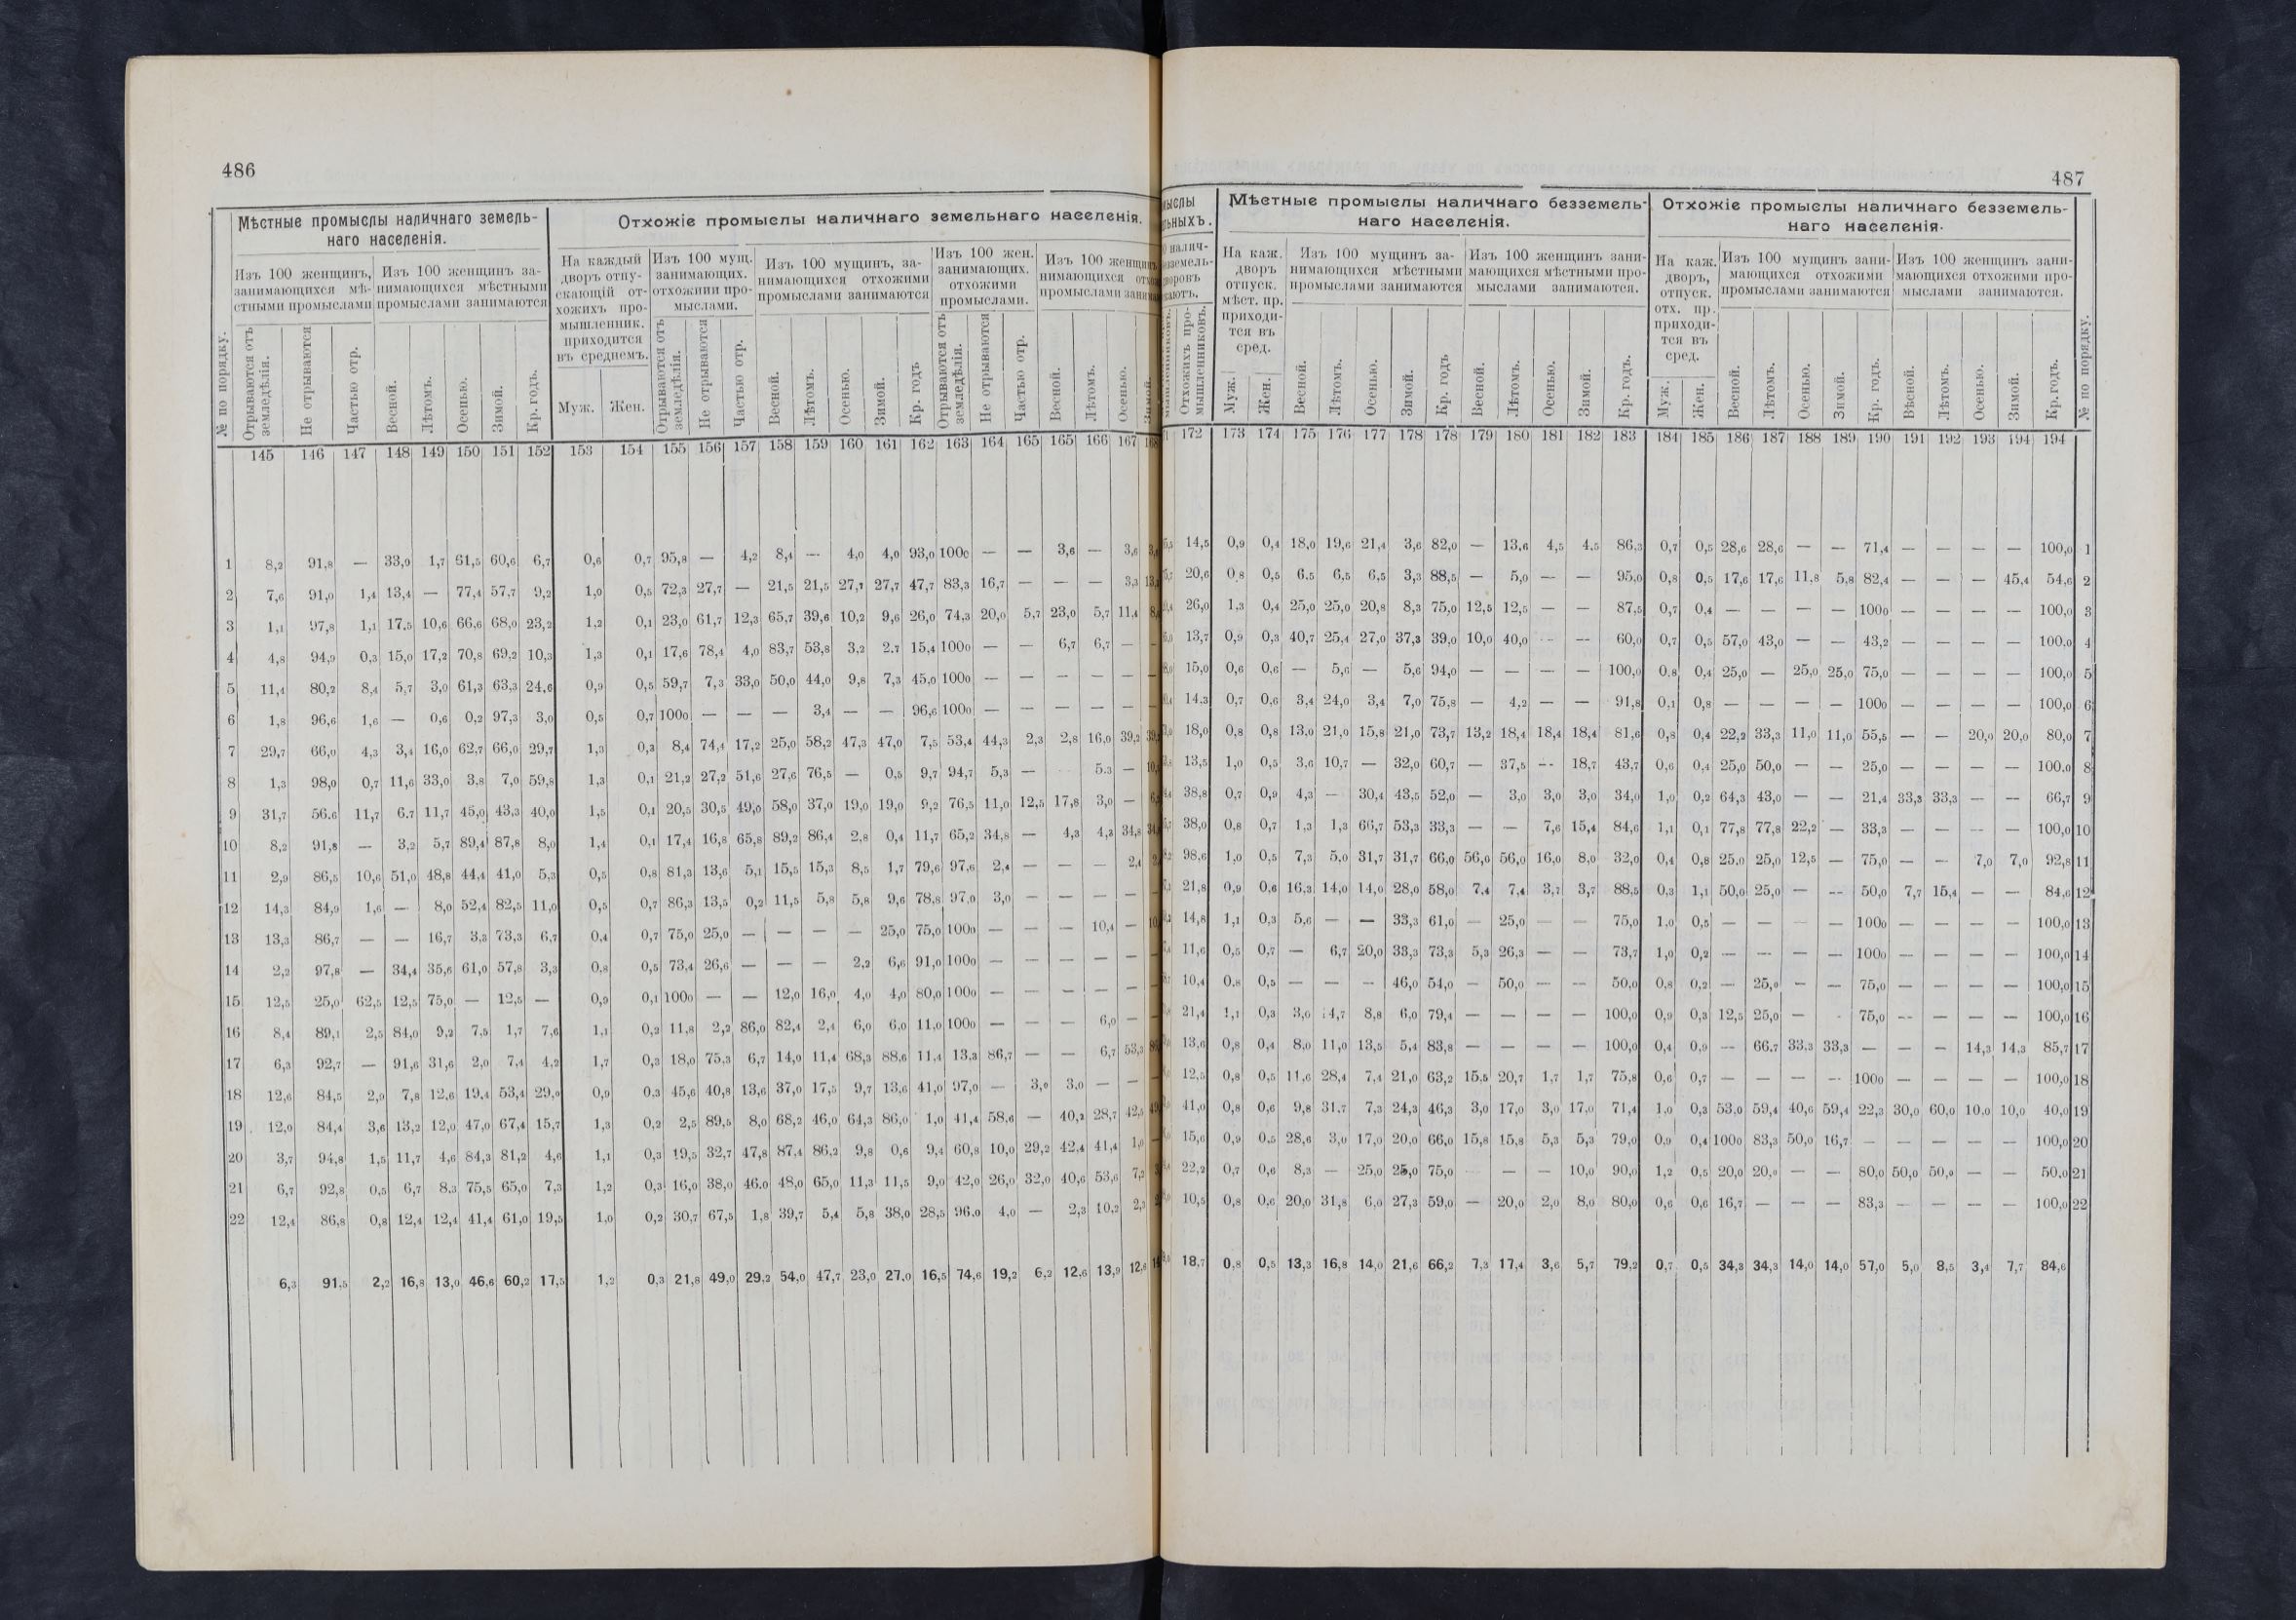 486
Мѣстные промыслы наличнаго земель-
наго населенія.
Отхожіе промыслы наличнаго земельнаго населенія.
Изъ 100 женщинъ,
занимающихся мѣ-
стными промыслами
Изъ 100 женщинъ за-
нимающихся мѣстными
промыслами занимаются
На каждый
дворъ отпу-
скающій от-
хожихъ про-
мышленник.
приходится
въ среднемъ.
Изъ 100 мущ.
занимающих.
отхожими про-
мыслами.
Изъ 100 мущинъ, за-
нимающихся отхожими
промыслами занимаются
Изъ 100 жен.
занимающих.
отхожими
промыслами.
Изъ 100 женщинъ
нимающихся
промыслами
№ по порядку. Отрываются отъ земледѣлія. Не отрываются Частью отр. Весной. Лѣтомъ. Осенью. Зимой. Кр. годъ. Муж. Жен. Отрываются отъ земледѣлія. Не отрываются Частью отр. Весной. Лѣтомъ. Осенью. Зимой. Кр. годъ Отрываются отъ земледѣлія. Не отрываются Частью отр. Весной. Лѣтомъ. Осенью.
145 146 147 148 149 150 151 152 153 154 155 156 157 158 159 160 161 162 163 164 165 165 166 167
1 8,2 91,8 — 33,9 1,7 61,5 60,6 6,7 0,6 0,7 95,8 — 4,2 8,4 — 4,0 4,0 93,0 1000 — — 3,6 — 3,6
2 7,6 91,0 1,4 13,4 — 77,4 57,7 9,2 1,0 0,5 72,3 27,7 — 21,5 21,5 27,7 27,7 47,7 83,3 16,7 — — — 3,3
3 1,1 97,8 1,1 17,5 10,6 66,6 68,0 23,2 1,2 0,1 23,0 61,7 12,3 65,7 39,6 10,2 9,6 26,0 74,3 20,0 5,7 23,0 5,7 11,4
4 4,8 94,9 0,3 15,0 17,2 70,8 69,2 10,3 1,3 0,1 17,6 78,4 4,0 83,7 53,8 3,2 2,7 15,4 1000 — — 6,7 6,7 —
5 11,4 80,2 8,4 5,7 3,0 61,3 63,3 24,6 0,9 0,5 59,7 7,3 33,0 50,0 44,0 9,8 7,3 45,0 1000 — — — — —
6 1,8 96,6 1,6 — 0,6 0,2 97,3 3,0 0,5 0,7 1000 — — — 3,4 — — 96,6 1000 — — — — —
7 29,7 66,0 4,3 3,4 16,0 62,7 66,0 29,7 1,3 0,3 8,4 74,4 17,2 25,0 58,2 47,3 47,0 7,5 53,4 44,3 2,3 2,8 16,0 39,2
8 1,3 98,0 0,7 11,6 33,0 3,8 7,0 59,8 1,3 0,1 21,2 27,2 51,6 27,6 76,5 — 0,5 9,7 94,7 5,3 — 5,3 —
9 31,7 56,6 11,7 6,7 11,7 45,0 43,3 40,0 1,5 0,1 20,5 30,5 49,0 58,0 37,0 19,0 19,0 9,2 76,5 11,0 12,5 17,8 3,0 —
10 8,2 91,8 — 3,2 5,7 89,4 87,8 8,0 1,4 0,1 17,4 16,8 65,8 89,2 86,4 2,8 0,4 11,7 65,2 34,8 — 4,3 4,3 34,8
11 2,9 86,5 10,6 51,0 48,8 44,4 41,0 5,3 0,5 0,8 81,3 13,6 5,1 15,5 15,3 8,5 1,7 79,6 97,6 2,4 — — — 2,4
12 14,3 84,9 1,6 — 8,0 52,4 82,5 11,0 0,5 0,7 86,3 13,5 0,2 11,5 5,8 5,8 9,6 78,8 97,0 3,0 — — — —
13 13,3 86,7 — — 16,7 3,3 73,3 6,7 0,4 0,7 75,0 25,0 — — — — 25,0 75,0 1000 — — — 10,4 —
14 2,2 97,8 — 34,4 35,6 61,0 57,8 3,3 0,8 0,5 73,4 26,6 — — — 2,2 6,6 91,0 1000 — — — — —
15 12,5 25,0 62,5 12,5 75,0 — 12,5 — 0,9 0,1 1000 — — 12,0 16,0 4,0 4,0 80,0 1000 — — — — —
16 8,4 89,1 2,5 84,0 9,2 7,5 1,7 7,6 1,1 0,2 11,8 2,2 86,0 82,4 2,4 6,0 6,0 11,0 1000 — — — 6,0 —
17 6,3 92,7 — 91,6 31,6 2,0 7,4 4,2 1,7 0,3 18,0 75,3 6,7 14,0 11,4 68,3 88,6 11,4 13,3 86,7 — — 6,7 53,3
18 12,6 84,5 2,9 7,8 12,6 19,4 53,4 29,0 0,9 0,3 45,6 40,8 13,6 37,0 17,5 9,7 13,6 41,0 97,0 — 3,0 3,0 — —
19 12,0 84,4 3,6 13,2 12,0 47,0 67,4 15,7 1,3 0,2 2,5 89,5 8,0 68,2 46,0 64,3 86,0 1,0 41,4 58,6 — 40,2 28,7 42,5
20 3,7 94,8 1,5 11,7 4,6 84,3 81,2 4,6 1,1 0,3 19,5 32,7 47,8 87,4 86,2 9,8 0,6 9,4 60,8 10,0 29,2 42,4 41,4 1,0
21 6,7 92,8 0,5 6,7 8,3 75,5 65,0 7,3 1,2 0,3 16,0 38,0 46,0 48,0 65,0 11,3 11,5 9,0 42,0 26,0 32,0 40,6 53,6 7,2
22 12,4 86,8 0,8 12,4 12,4 41,4 61,0 19,5 1,0 0,2 30,7 67,5 1,8 39,7 5,4 5,8 38,0 28,5 96,0 4,0 — 2,3 10,2 2,3
6,3 91,5 2,2 16,8 13,0 46,6 60,2 17,5 1,2 0,3 21,8 49,0 29,2 54,0 47,7 23,0 27,0 16,5 74,6 19,2 6,2 12,6 13,9 12,6
487
Мѣстные промыслы наличнаго безземель-
наго населенія.
Отхожіе промыслы наличнаго безземель-
наго населенія.
На каж.
дворъ
отпуск.
мѣст. пр.
приходи-
тся въ
сред.
Изъ 100 мущинъ за-
нимающихся мѣстными
промыслами занимаются
Изъ 100 женщинъ зани-
мающихся мѣстными про-
мыслами занимаются.
На каж.
дворъ,
отпуск.
отх. пр.
приходи-
тся въ
сред.
Изъ 100 мущинъ зани-
мающихся отхожими
промыслами занимаются
Изъ 100 женщинъ зани-
мающихся отхожими про-
мыслами занимаются.
Отхожихъ про-мышленниковъ. Муж. Жен. Весной. Лѣтомъ. Осенью. Зимой. Кр. годъ Весной. Лѣтомъ. Осенью. Зимой. Кр. годъ. Муж. Жен. Весной. Лѣтомъ. Осенью. Зимой. Кр. годъ. Вѣсной. Лѣтомъ. Осенью. Зимой. Кр. годъ. № по порядку.
172 173 174 175 176 177 178 178 179 180 181 182 183 184 185 186 187 188 189 190 191 192 193 194 194
14,5 0,9 0,4 18,0 19,6 21,4 3,6 82,0 — 13,6 4,5 4,5 86,3 0,7 0,5 28,6 28,6 — — 71,4 — — — — 100,0 1
20,6 0,8 0,5 6,5 6,5 6,5 3,3 88,5 — 5,0 — — 95,0 0,8 0,5 17,6 17,6 11,8 5,8 82,4 — — — 45,4 54,6 2
26,0 1,3 0,4 25,0 25,0 20,8 8,3 75,0 12,5 12,5 — — 87,5 0,7 0,4 — — — — 1000 — — — — 100,0 3
13,7 0,9 0,3 40,7 25,4 27,0 37,3 39,0 10,0 40,0 — — 60,0 0,7 0,5 57,0 43,0 — — 43,2 — — — — 100,0 4
15,0 0,6 0,6 — 5,6 — 5,6 94,0 — — — — 100,0 0,8 0,4 25,0 — 25,0 25,0 75,0 — — — — 100,0 5
14,3 0,7 0,6 3,4 24,0 3,4 7,0 75,8 — 4,2 — — 91,8 0,1 0,8 — — — — 1000 — — — — 100,0 6
18,0 0,8 0,8 13,0 21,0 15,8 21,0 73,7 13,2 18,4 18,4 18,4 81,6 0,8 0,4 22,2 33,3 11,0 11,0 55,5 — — 20,0 20,0 80,0 7
13,5 1,0 0,5 3,6 10,7 — 32,0 60,7 — 37,5 — 18,7 43,7 0,6 0,4 25,0 50,0 — — 25,0 — — — — 100,0 8
38,8 0,7 0,9 4,3 — 30,4 43,5 52,0 — 3,0 3,0 3,0 34,0 1,0 0,2 64,3 43,0 — — 21,4 33,3 33,3 — — 66,7 9
38,0 0,8 0,7 1,3 1,3 66,7 53,3 33,3 — — 7,6 15,4 84,6 1,1 0,1 77,8 77,8 22,2 — 33,3 — — — — 100,0 10
98,6 1,0 0,5 7,3 5,0 31,7 31,7 66,0 56,0 56,0 16,0 8,0 32,0 0,4 0,8 25,0 25,0 12,5 — 75,0 — — 7,0 7,0 92,8 11
21,8 0,9 0,6 16,3 14,0 14,0 28,0 58,0 7,4 7,4 3,7 3,7 88,5 0,3 1,1 50,0 25,0 — — 50,0 7,7 15,4 — — 84,6 12
14,8 1,1 0,3 5,6 — — 33,3 61,0 — 25,0 — — 75,0 1,0 0,5 — — — — 1000 — — — — 100,0 13
11,6 0,5 0,7 — 6,7 20,0 33,3 73,3 5,3 26,3 — — 73,7 1,0 0,2 — — — — 1000 — — — — 100,0 14
10,4 0,8 0,5 — — — 46,0 54,0 — 50,0 — — 50,0 0,8 0,2 — 25,0 — — 75,0 — — — — 100,0 15
21,4 1,1 0,3 3,0 14,7 8,8 6,0 79,4 — — — — 100,0 0,9 0,3 12,5 25,0 — - 75,0 — — — — 100,0 16
13,6 0,8 0,4 8,0 11,0 13,5 5,4 83,8 — — — — 100,0 0,4 0,9 — 66,7 33,3 33,3 — — — 14,3 14,3 85,7 17
12,5 0,8 0,5 11,6 28,4 7,4 21,0 63,2 15,5 20,7 1,7 1,7 75,8 0,6 0,7 — — — — 1000 — — — — 100,0 18
41,0 0,8 0,6 9,8 31,7 7,3 24,3 46,3 3,0 17,0 3,0 17,0 71,4 1,0 0,3 53,0 59,4 40,6 59,4 22,3 30,0 60,0 10,0 10,0 40,0 19
15,6 0,9 0,5 28,6 3,0 17,0 20,0 66,0 15,8 15,8 5,3 5,3 79,0 0,9 0,4 1000 83,3 50,0 16,7 — — — — — 100,0 20
22,2 0,7 0,6 8,3 — 25,0 25,0 75,0 — — 10,0 90,0 1,2 0,5 20,0 20,0 — — 80,0 50,0 50,0 — — 50,0 21
10,5 0,8 0,6 20,0 31,8 6,0 27,3 59,0 — 20,0 2,0 8,0 80,0 0,6 0,6 16,7 — — — 83,3 — — — — 100,0 22
18,7 0,8 0,5 13,3 16,8 14,0 21,6 66,2 7,3 17,4 3,6 5,7 79,2 0,7 0,5 34,3 34,3 14,0 14,0 57,0 5,0 8,5 3,4 7,7 84,6